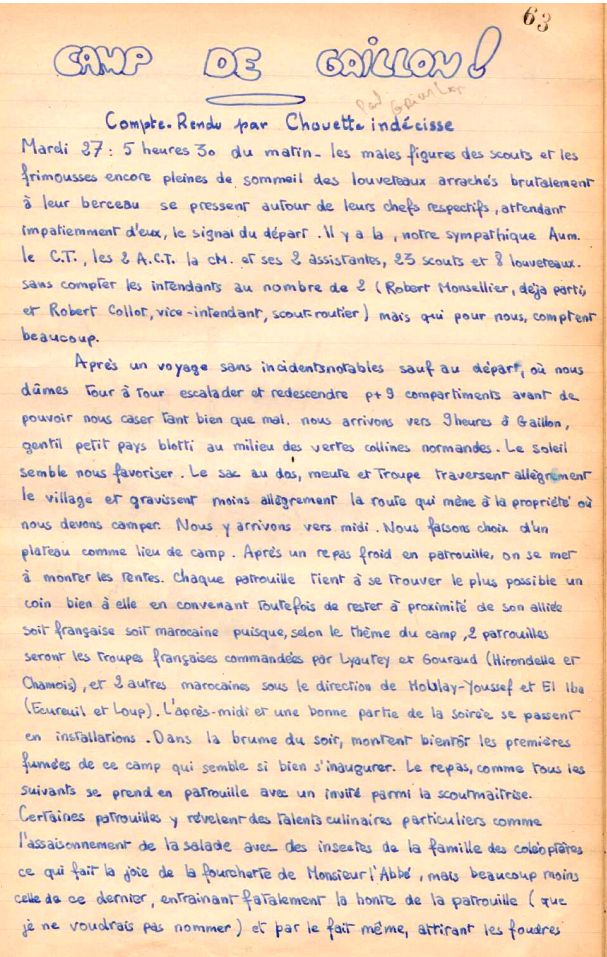 63
CAMP DE GAILLON !
Compte-Rendu par Chouette indécisse
Mardi 27 : 5 heures 30 du matin - les males figures des scouts et les
frimousses encore pleines de sommeil des louveteaux arrachés brutalement
à leur berceau se pressent autour de leurs chefs respectifs, attendant
impatiemment d'eux, le signal du départ. Il y a la, notre sympathique Aum.
le C.T., les 2 A.C.T. la cM. et ses 2 assistantes, 23 scouts et 8 louveteaux.
sans compter les intendants au nombre de 2 (Robert Monsellier, déja parti,
et Robert Collot, vice-intendant, scout-routier) mais qui pour nous, comptent
beaucoup.
Après un voyage sans incidents notables sauf au départ, où nous
dûmes tour à tour escalader et redescendre p+9 compartiments avant de
pouvoir nous caser tant bien que mal. nous arrivons vers 9 heures à Gaillon,
gentil petit pays blotti au milieu des vertes collines normandes. Le soleil
semble nous favoriser. Le sac au dos, meute et Troupe traversent allègrement
le village et gravissent moins allègrement la route qui mène à la propriété où
nous devons camper. Nous y arrivons vers midi. Nous faisons choix d'un
plateau comme lieu de camp. Après un repas froid en patrouille, on se met
à monter les tentes. Chaque patrouille tient à se trouver le plus possible un
coin bien à elle en convenant toutefois de rester à proximité de son alliée
soit française soit marocaine puisque, selon le thème du camp, 2 patrouilles
seront les troupes françaises commandées par Lyautey et Gouraud (Hirondelle et
Chamois), et 2 autres marocaines sous le direction de Moulay-Youssef et El Iba
(Ecureuil et Loup). L'après-midi et une bonne partie de la soirée se passent
en installations. Dans la brume du soir, montent bientôt les premières
fumées de ce camp qui semble si bien s'inaugurer. Le repas, comme tous les
suivants se prend en patrouille avec un invité parmi la scoutmaitrise.
Certaines patrouilles y révelent des talents culinaires particuliers comme
l'assaisonnement de la salade avec des insectes de la famille des coléoptères
ce qui fait la joie de la fourchette de Monsieur l'Abbé, mais beaucoup moins
celle de ce dernier, entrainant fatalement la honte de la patrouille (que
je ne voudrais pas nommer) et par le fait même, attirant les foudres